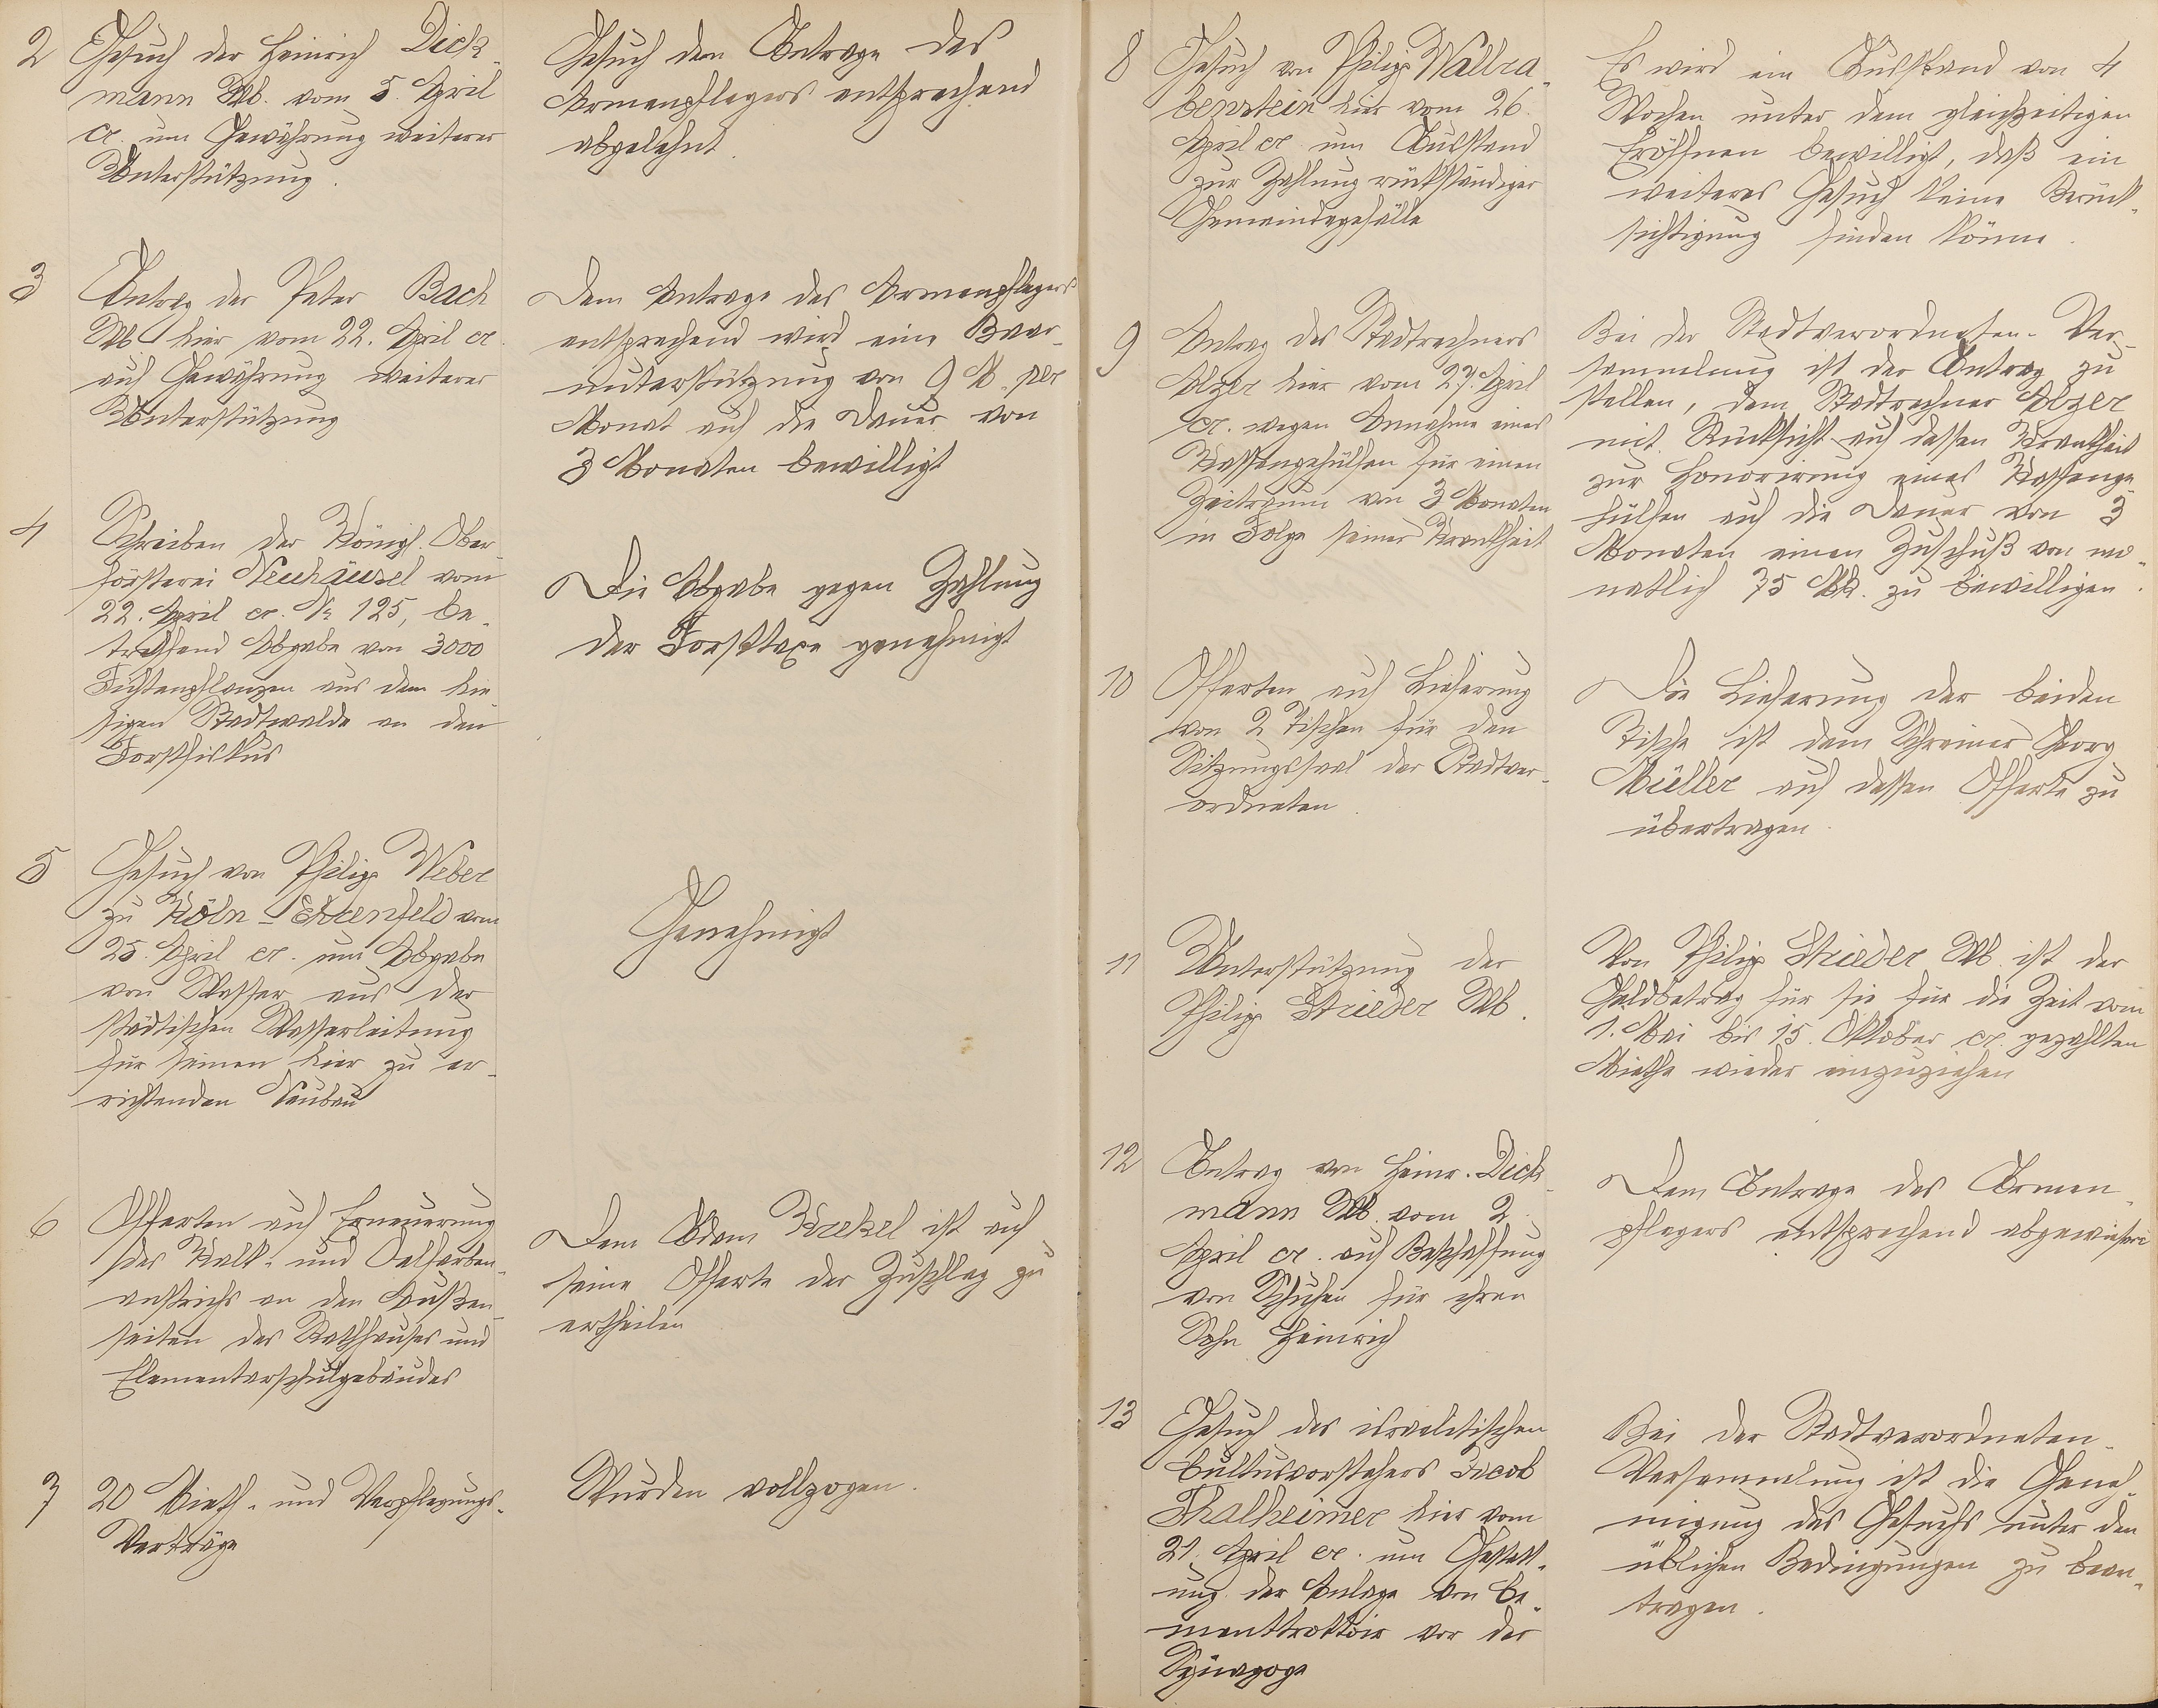 2
Gesuch der Heinrich Dick-
mann Wb. vom 5. April
cr. um Gewährung weiterer
Unterstützung.
Gesuch dem Antrage des
Armenpflegers entsprechend
abgelehnt.
3
Antrag der Peter Bach
Wb hier vom 22. April cr.
auf Gewährung weiterer
Unterstützung
Dem Antrage des Armenpflegers
entsprechend wird eine Baar-
unterstützung von 9 M. per
Monat auf die Dauer von
3 Monaten bewilligt
4
Schreiben der Königl. Ober-
försterei Neuhäusel vom
22. April cr. No 125, be-
treffend Abgabe von 3000
Fichtenpflanzen aus dem hie-
sigen Stadtwalde an den
Forstfiskus
Die Abgabe gegen Zahlung
der Forsttaxe genehmigt
5
Gesuch von Philipp Weber
zu Köln-Ehrenfeld vom
25. April cr. um Abgabe
von Wasser aus der
städtischen Wasserleitung
für seinen hier zu er-
richtenden Neubau
Genehmigt
6
Offerten auf Erneuerung
des Kalk- und Oelfarben-
anstrichs an den Außen-
seiten des Rathhauses und
Elementarschulgebäudes
Dem Adam Krekel ist auf
seine Offerte der Zuschlag zu
ertheilen
7
20 Mieth- und Verpflegungs-
Verträge
Wurden vollzogen.
8
Gesuch von Philipp Wallra-
benstein hier vom 26.
April cr. um Ausstand
zur Zahlung rückständiger
Gemeindegefälle
Es wird ein Ausstand von 4
Wochen unter dem gleichzeitigen
Eröffnen bewilligt, daß ein
weiteres Gesuch keine Berück-
sichtigung finden könne.
9
Antrag des Stadtrechners
Alzer hier vom 27. April
cr. wegen Annahme eines
Kassengehülfen für einen
Zeitraum von 3 Monaten
in Folge seiner Krankheit
Bei der Stadtverordneten-Ver-
sammlung ist der Antrag zu
stellen, dem Stadtrechner Alzer
mit Rücksicht auf dessen Krankheit
zur Honorirung eines Kassenge-
hülfen auf die Dauer von 3
Monaten einen Zuschuß von mo-
natlich 75 Mk. zu bewilligen.
10
Offerten auf Lieferung
von 2 Tischen für den
Sitzungssaal der Stadtver-
ordneten.
Die Lieferung der beiden
Tische ist dem Schreiner Georg
Müller auf dessen Offerte zu
übertragen.
11
Unterstützung der
Philipp Strieder Wb.
Von Philipp Strieder Wb. ist der
Geldbetrag für sie für die Zeit vom
1. Mai bis 15. Oktober cr. gezahlten
Miethe wieder einzuziehen
12
Antrag von Heinr. Dick-
mann Wb. vom 2.
April cr. auf Beschaffung
von Schuhen für ihren
Sohn Heinrich
Dem Antrage des Armen-
pflegers entsprechend abgewiesen
13
Gesuch des israelitischen
Cultusvorstehers Jacob
Thalheimer hier vom
21. April cr. um Gestatt-
ung der Anlage von Ce-
menttrottoir vor der
Synagoge
Bei der Stadtverordneten-
Versammlung ist die Geneh-
migung des Gesuchs unter den
üblichen Bedingungen zu bean-
tragen.